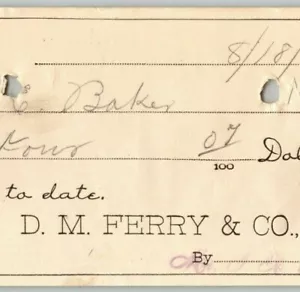 8/18/
E. Baker
Four 07/100 Dol
to date.
D. M. FERRY & CO.,
By